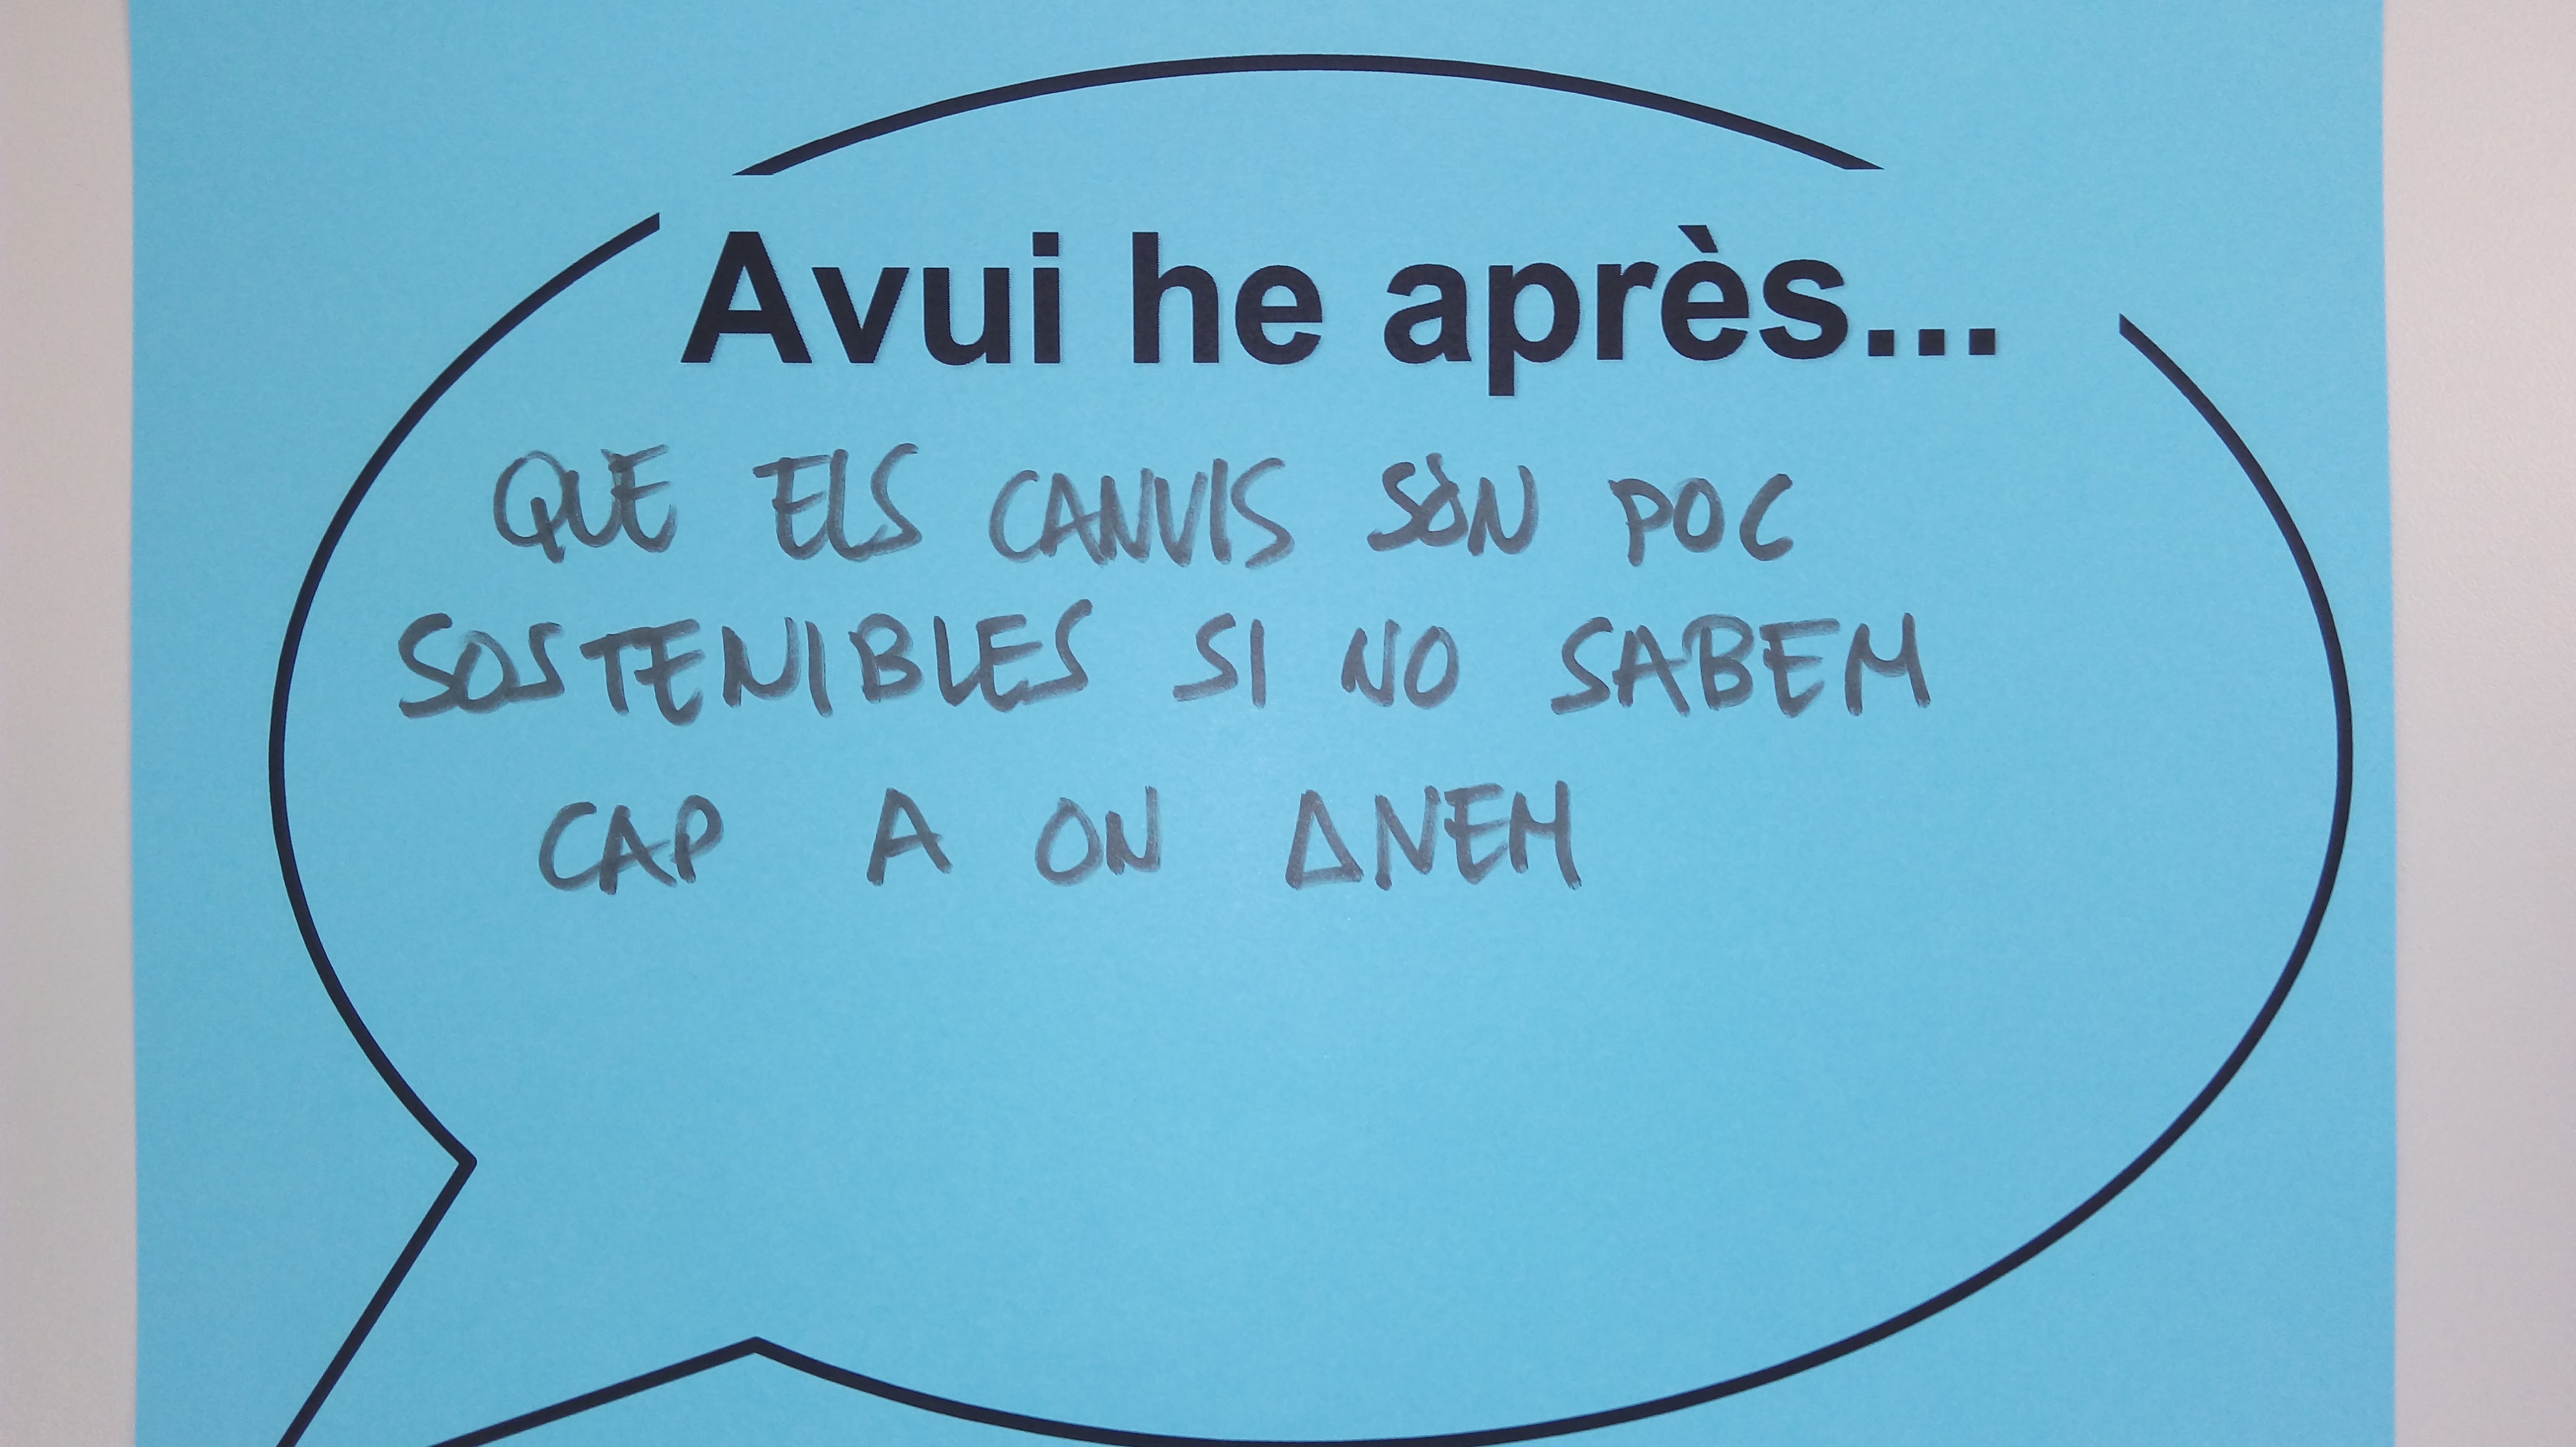 Avui he après...
QUE ELS CANVIS SÒN POC
SOSTENIBLES SI NO SABEM
CAP A ON ANEM